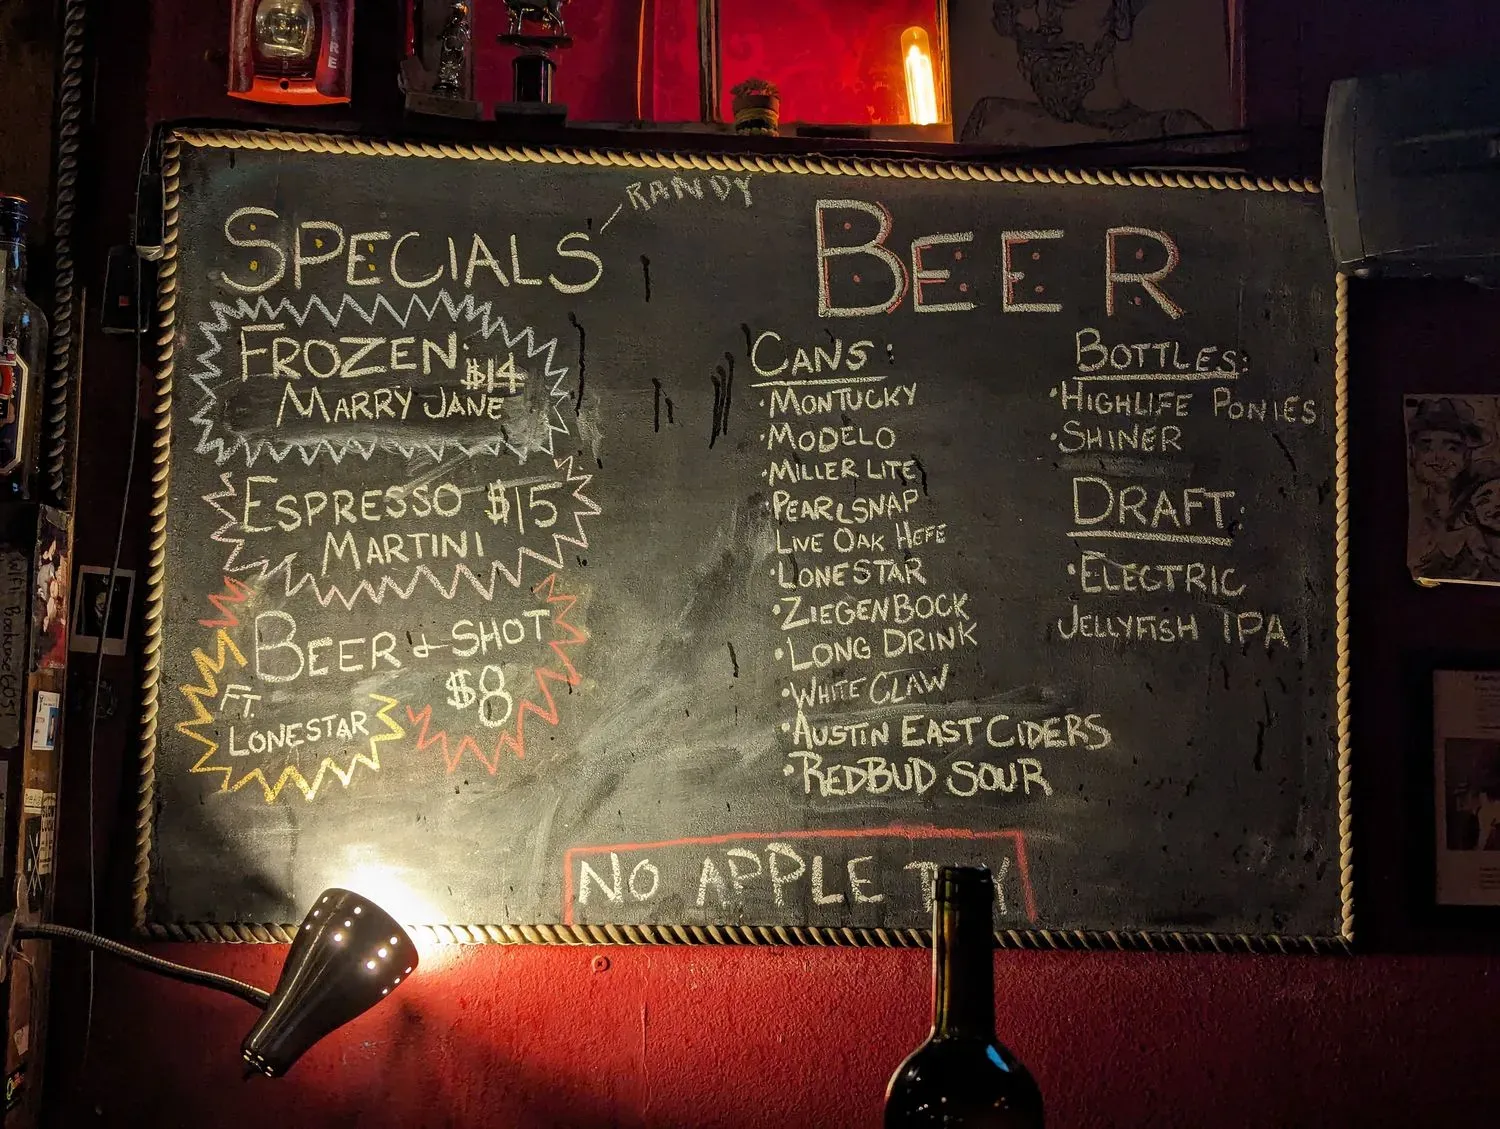 RANDY
SPECIALS
FROZEN: $14
MARRY JANE
ESPRESSO $15
MARTINI
BEER & SHOT
$8
FT.
LONESTAR
BEER
CANS:
·MONTUCKY
·MODELO
·MILLER LITE
·PEARLSNAP
LIVE OAK HEFE
·LONESTAR
·ZIEGENBOCK
·LONG DRINK
·WHITE CLAW
·AUSTIN EAST CIDERS
·REDBUD SOUR
BOTTLES:
·HIGHLIFE PONIES
·SHINER
DRAFT:
·ELECTRIC
JELLYFISH IPA
NO APPLE